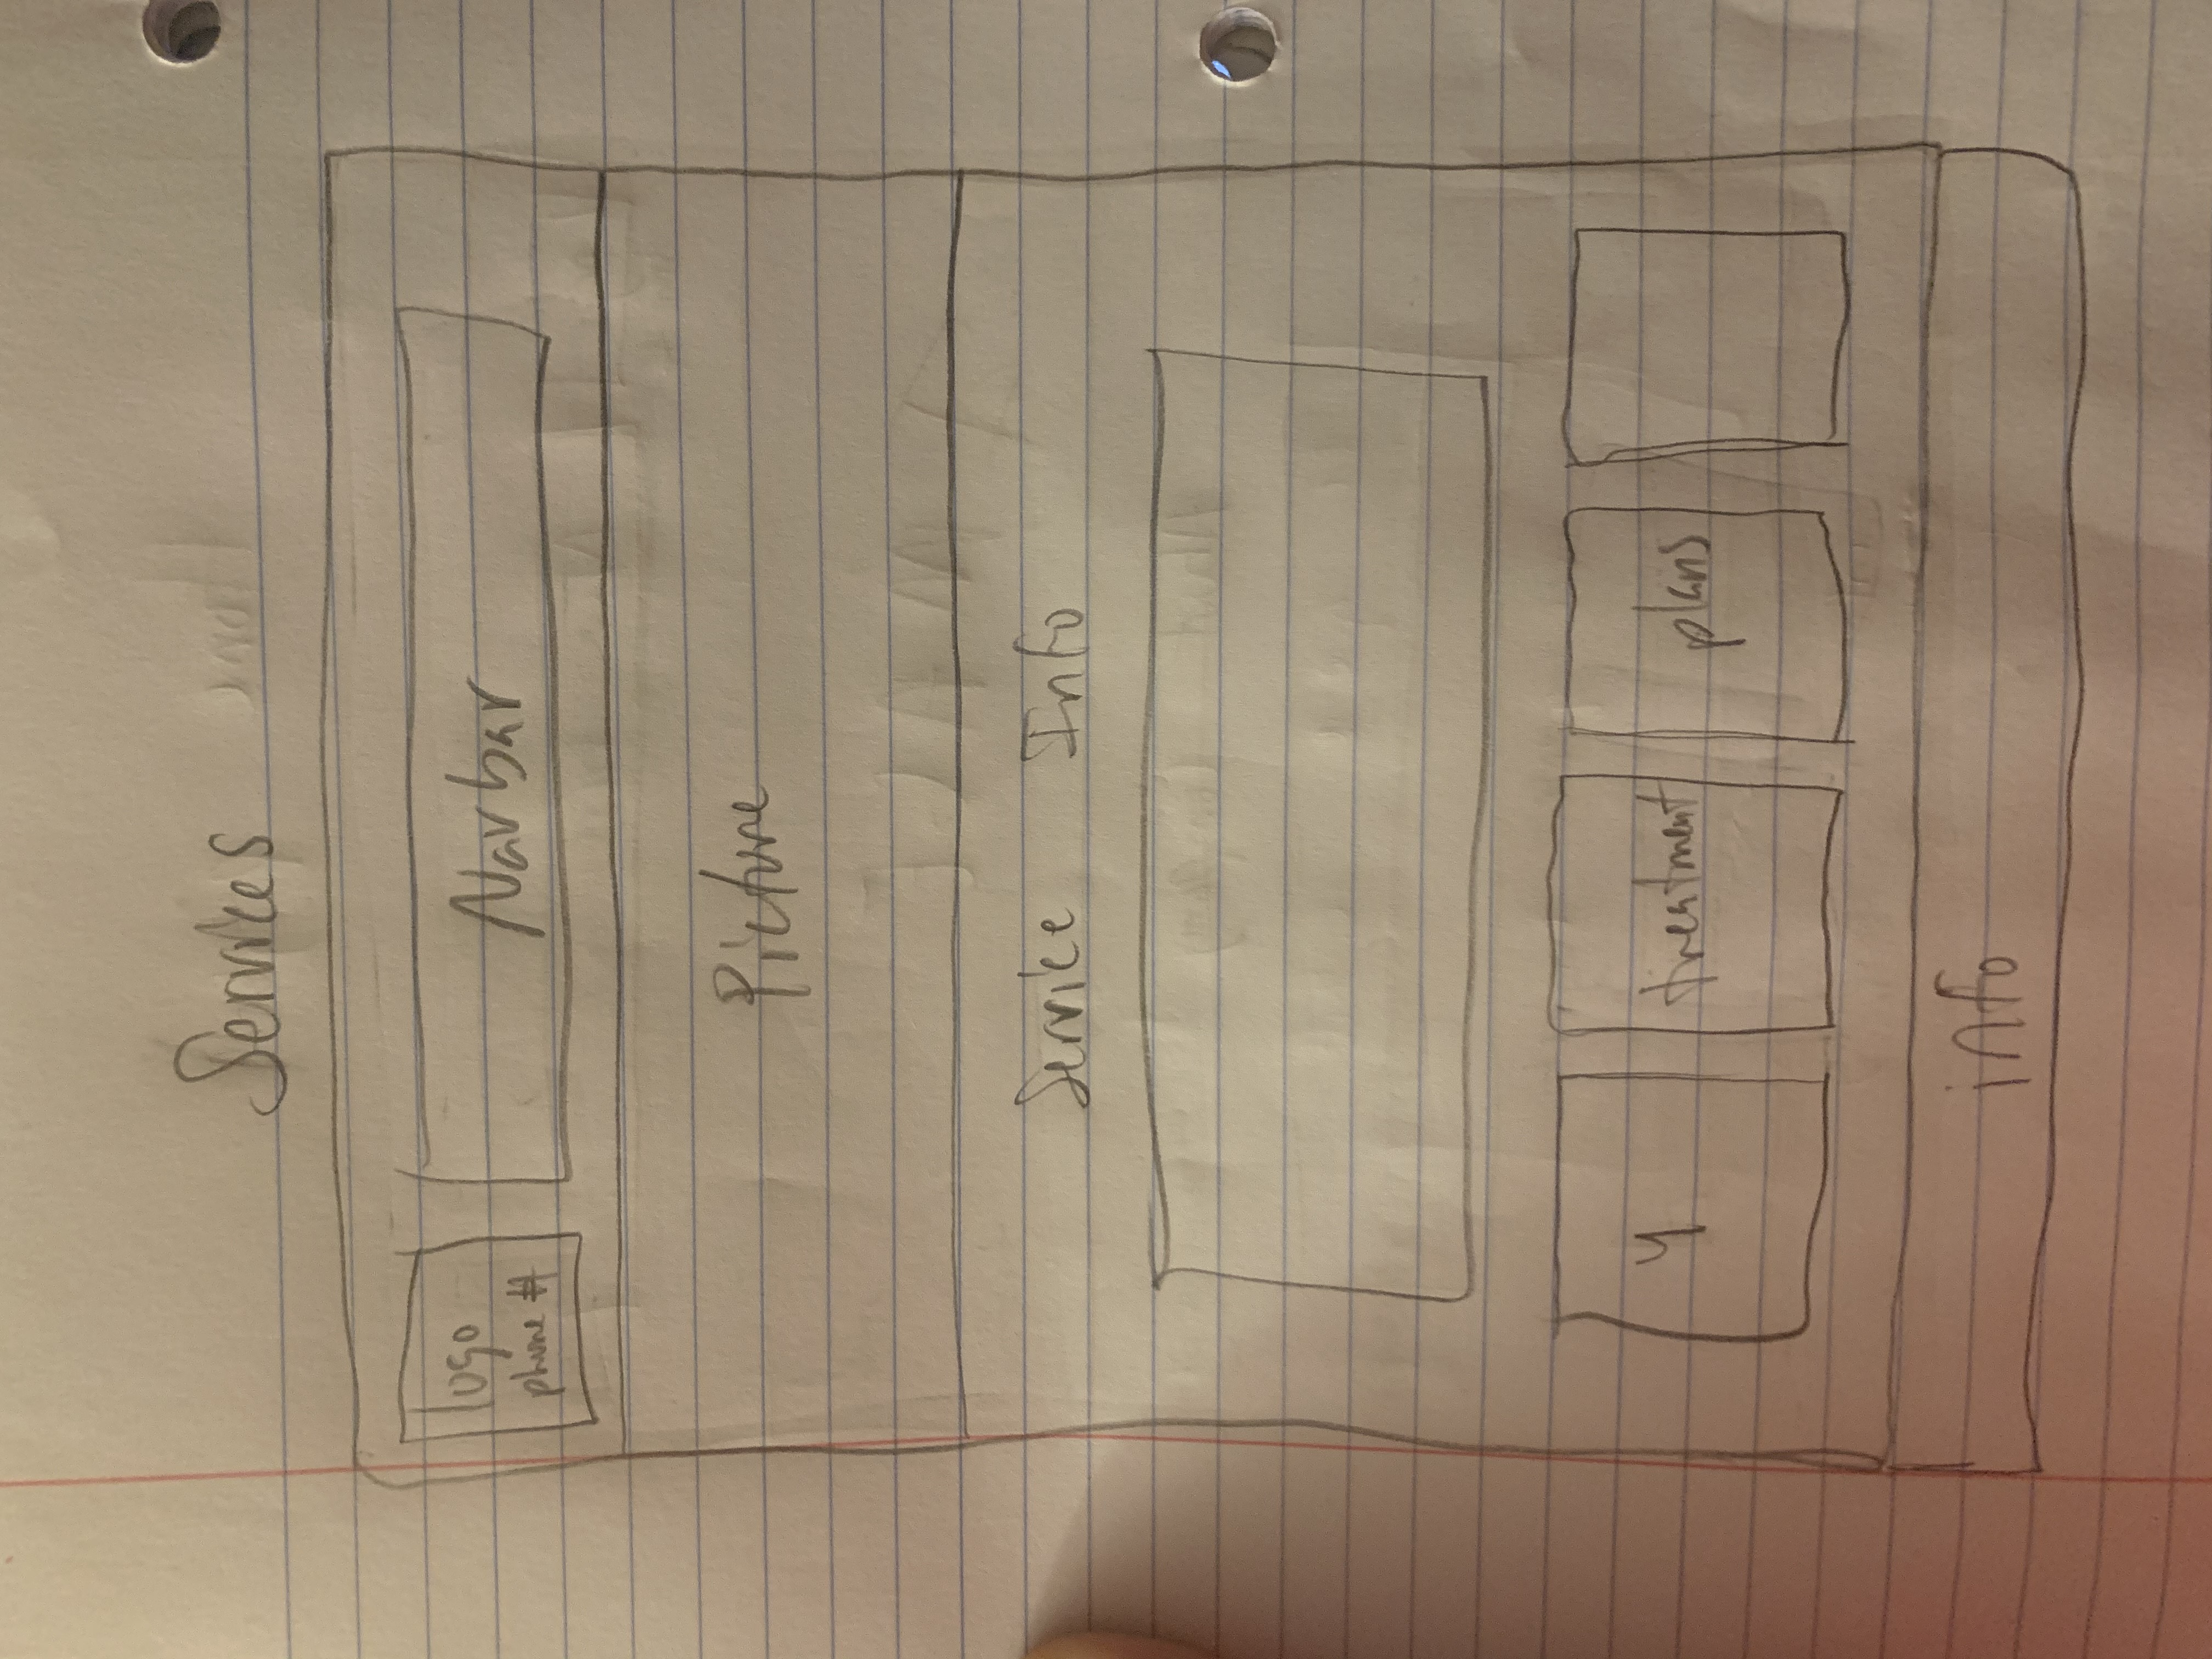 Services
logo
phone #
Navbar
Picture
Service Info
4 treatment plans
info